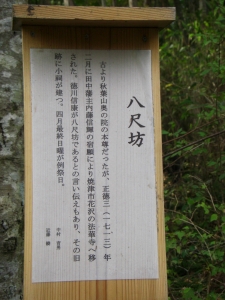 八尺坊
古より秋葉山奥の院の本尊だったが、正徳三(一七一三)年
二月に田中藩主内藤信輝の宿願により焼津市花沢の法華寺へ移
された。徳川信康が八尺坊であるとの言い伝えもあり、その旧
跡に小祠が建つ。四月最終日曜が例祭日。